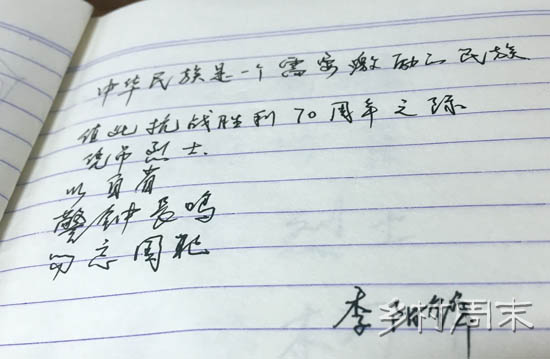 中华民族是一个需要激励的民族
值此抗战胜利70周年之际
吊烈士.
以自省
警钟長鸣
勿忘国耻
李
周末